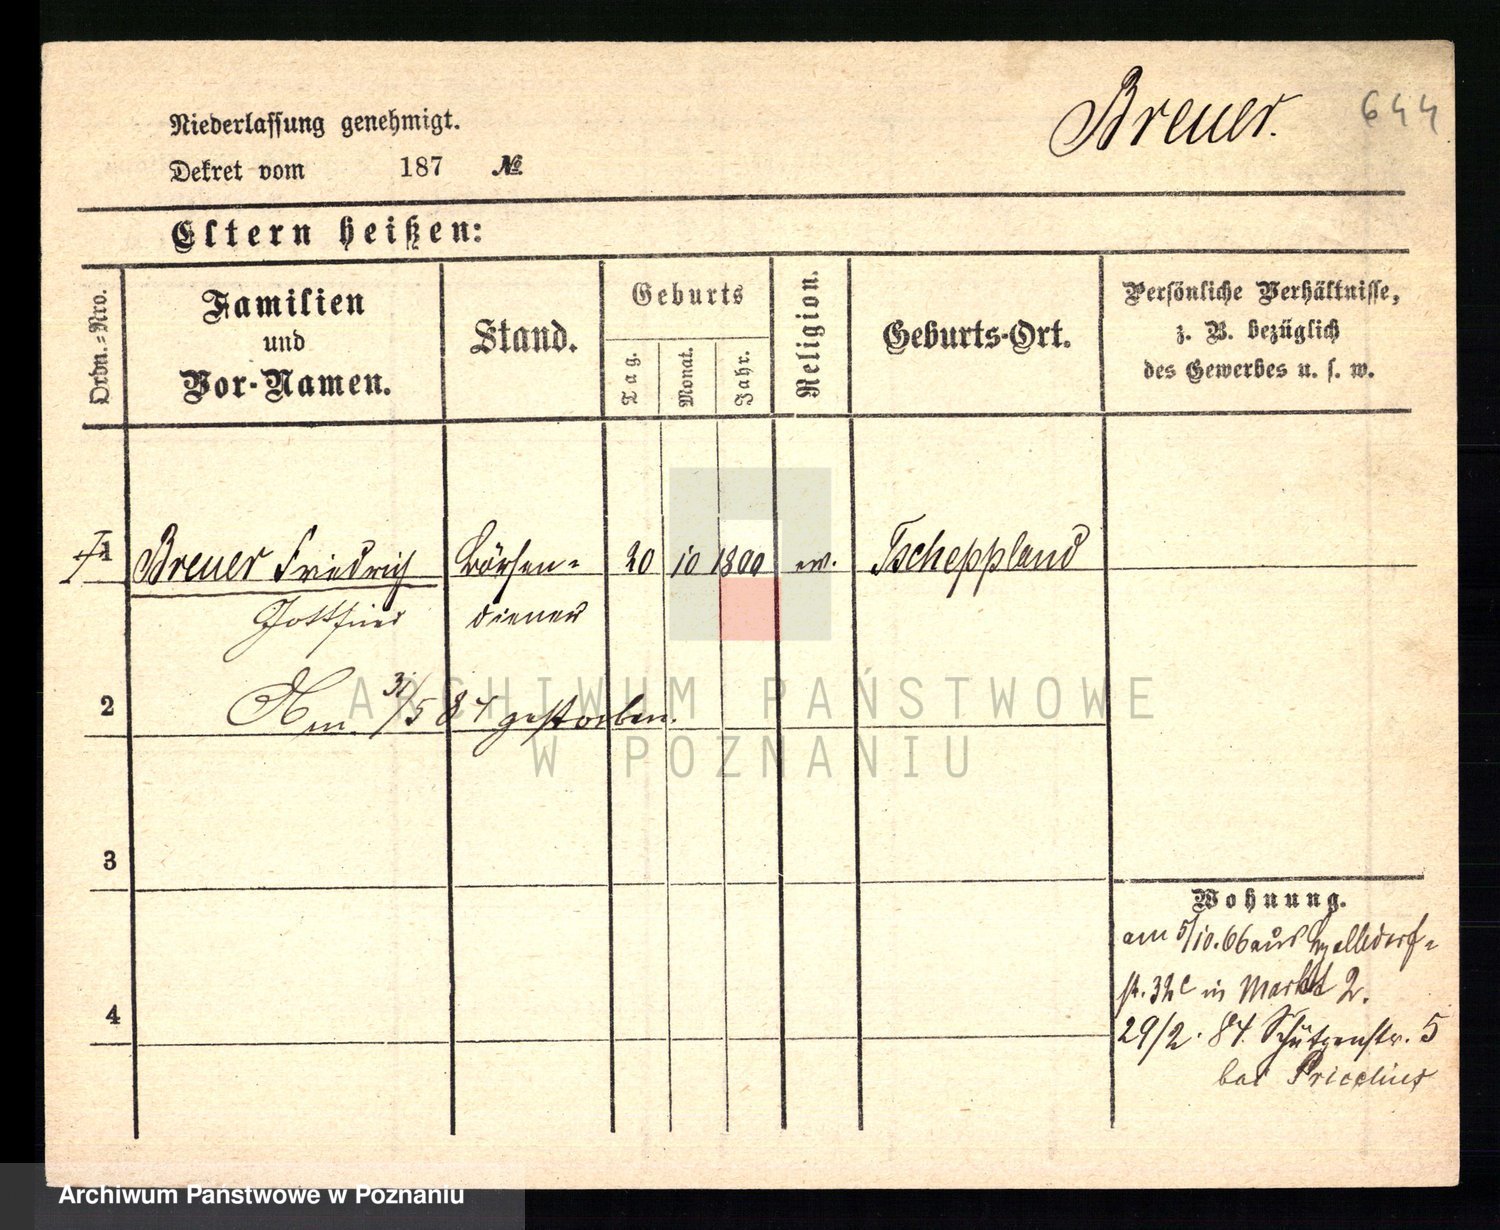 Niederlassung genehmigt.
Dekret vom 187 №
Breuer.
644
Eltern heißen:
Ordn.-Nro.
Familien
und
Vor-Namen.
Stand.
Geburts
Tag.
Monat.
Jahr.
Religion.
Geburts-Ort.
Persönliche Verhältnisse,
z. B. bezüglich
des Gewerbes u. s. w.
1 Breuer Friedrich Börsen- 20 10 1800 ev. Tscheppland
Gottfried diener
2 Am 31/5 84 gestorben.
3
4
Wohnung.
am 5/10.66 aus
str. 32c in Markt 2.
29/2. 84. Schützenstr. 5
bei
ARCHIWUM PAŃSTWOWE
W POZNANIU
Archiwum Państwowe w Poznaniu